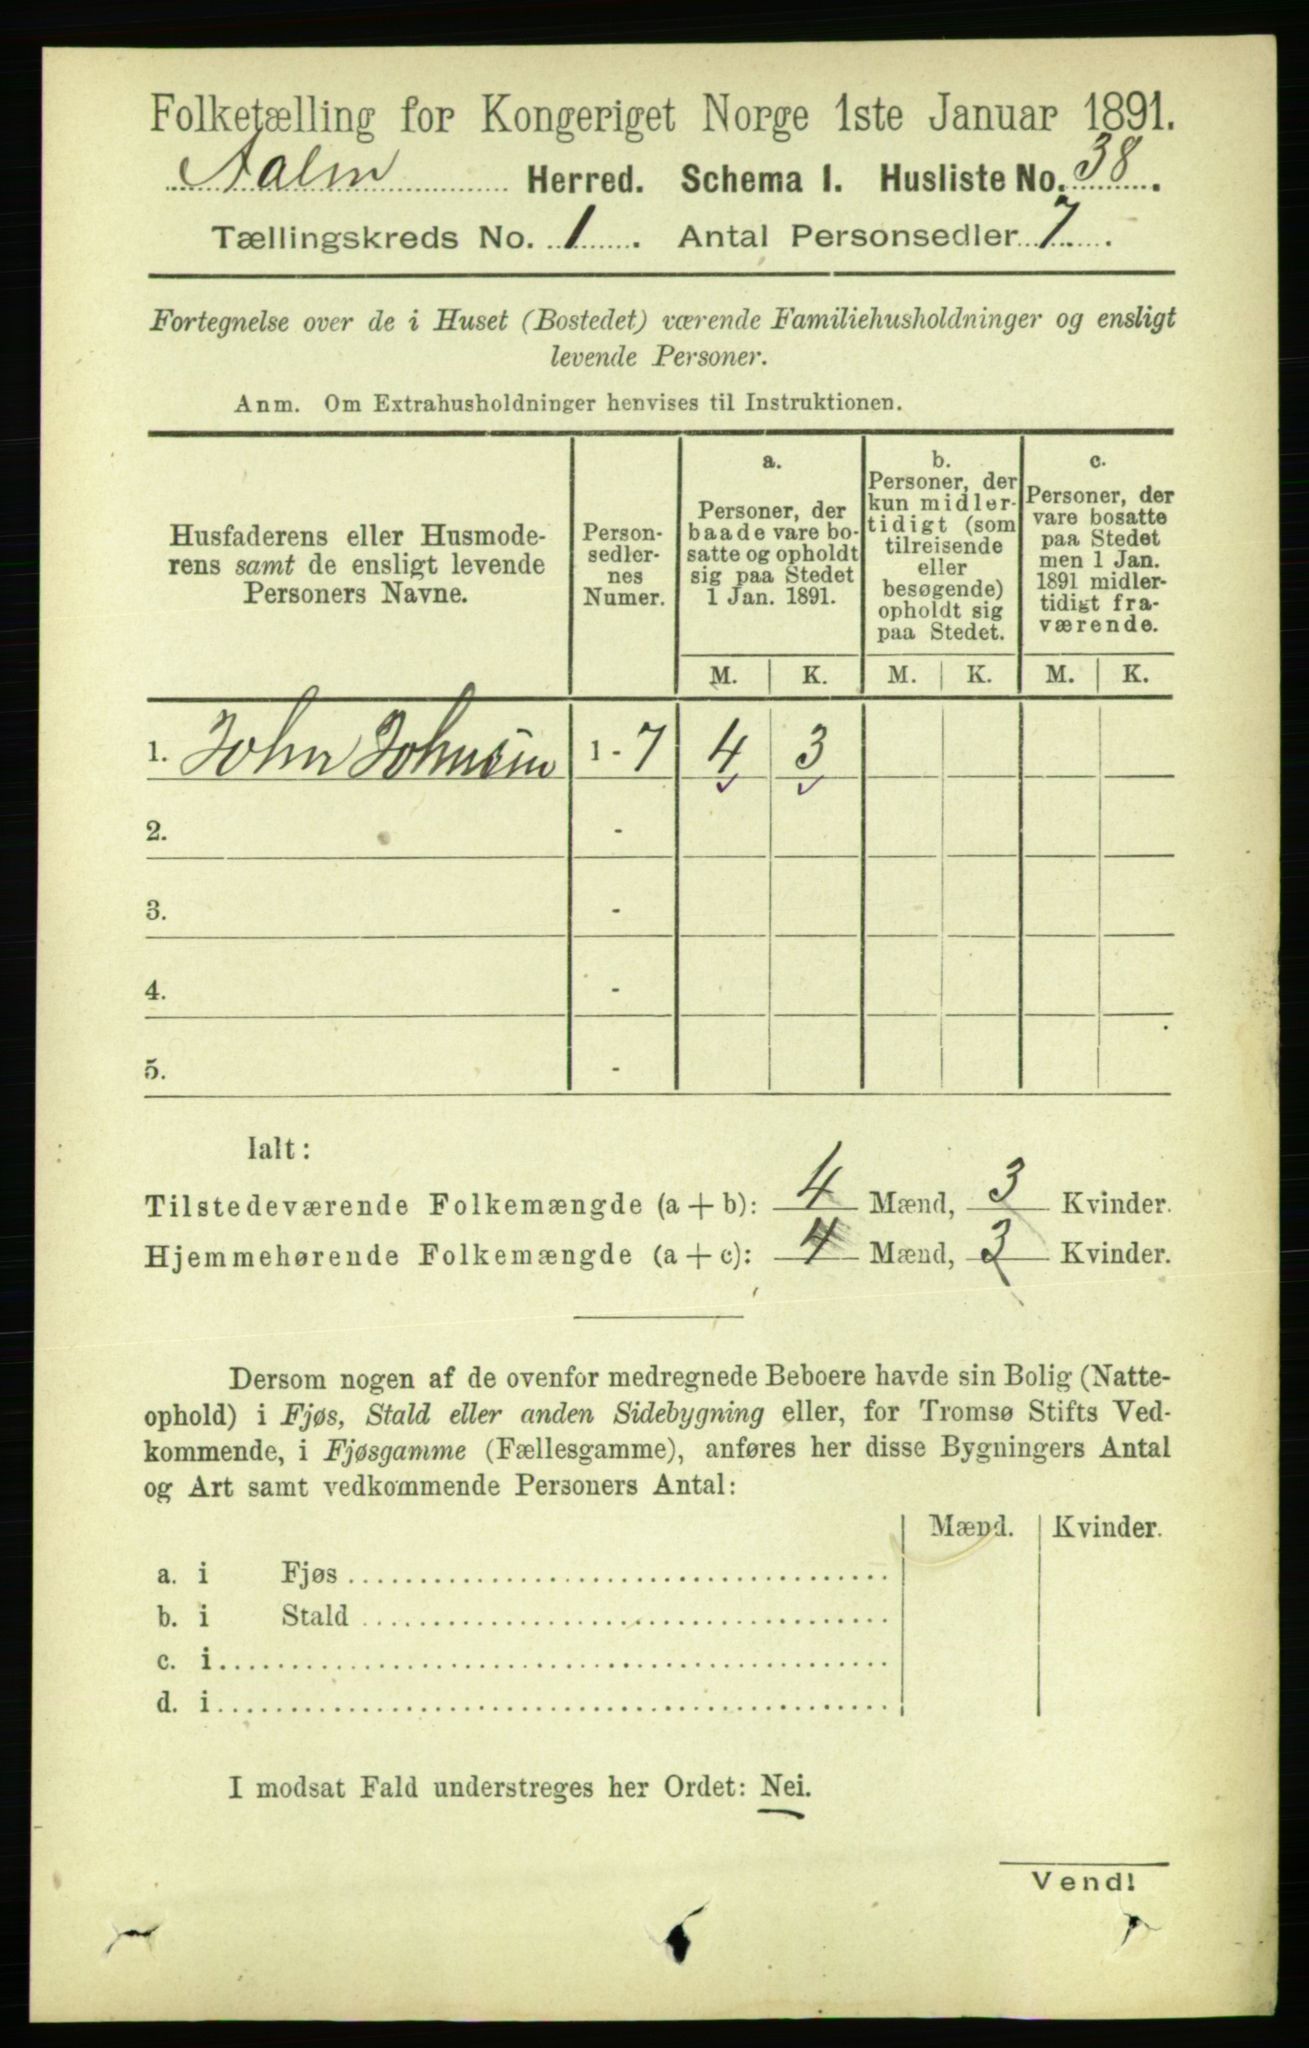 Folketælling for Kongeriget Norge 1ste Januar 1891.
Aalen Herred. Schema I. Husliste No. 38.
Tællingskreds No. 1. Antal Personsedler 7.
Fortegnelse over de i Huset (Bostedet) værende Familiehusholdninger og ensligt
levende Personer.
Anm. Om Extrahusholdninger henvises til Instruktionen.
Husfaderens eller Husmode-
rens samt de ensligt levende
Personers Navne.
Person-
sedler-
nes
Numer.
a.
Personer, der
baade vare bo-
satte og opholdt
sig paa Stedet
1 Jan. 1891.
b.
Personer, der
kun midler-
tidigt (som
tilreisende
eller
besøgende)
opholdt sig
paa Stedet.
c.
Personer, der
vare bosatte
paa Stedet
men 1 Jan.
1891 midler-
tidigt fra-
værende.
M. K. M. K. M. K.
1. John Johnsen 1 - 7 4 3
2. -
3. -
4. -
5. -
Ialt:
Tilstedeværende Folkemængde (a + b): 4 Mænd, 3 Kvinder.
Hjemmehørende Folkemængde (a + c): 4 Mænd, 3 Kvinder.
Dersom nogen af de ovenfor medregnede Beboere havde sin Bolig (Natte-
ophold) i Fjøs, Stald eller anden Sidebygning eller, for Tromsø Stifts Ved-
kommende, i Fjøsgamme (Fællesgamme), anføres her disse Bygningers Antal
og Art samt vedkommende Personers Antal:
Mænd. Kvinder.
a. i Fjøs
b. i Stald
c. i
d. i
I modsat Fald understreges her Ordet: Nei.
Vend!